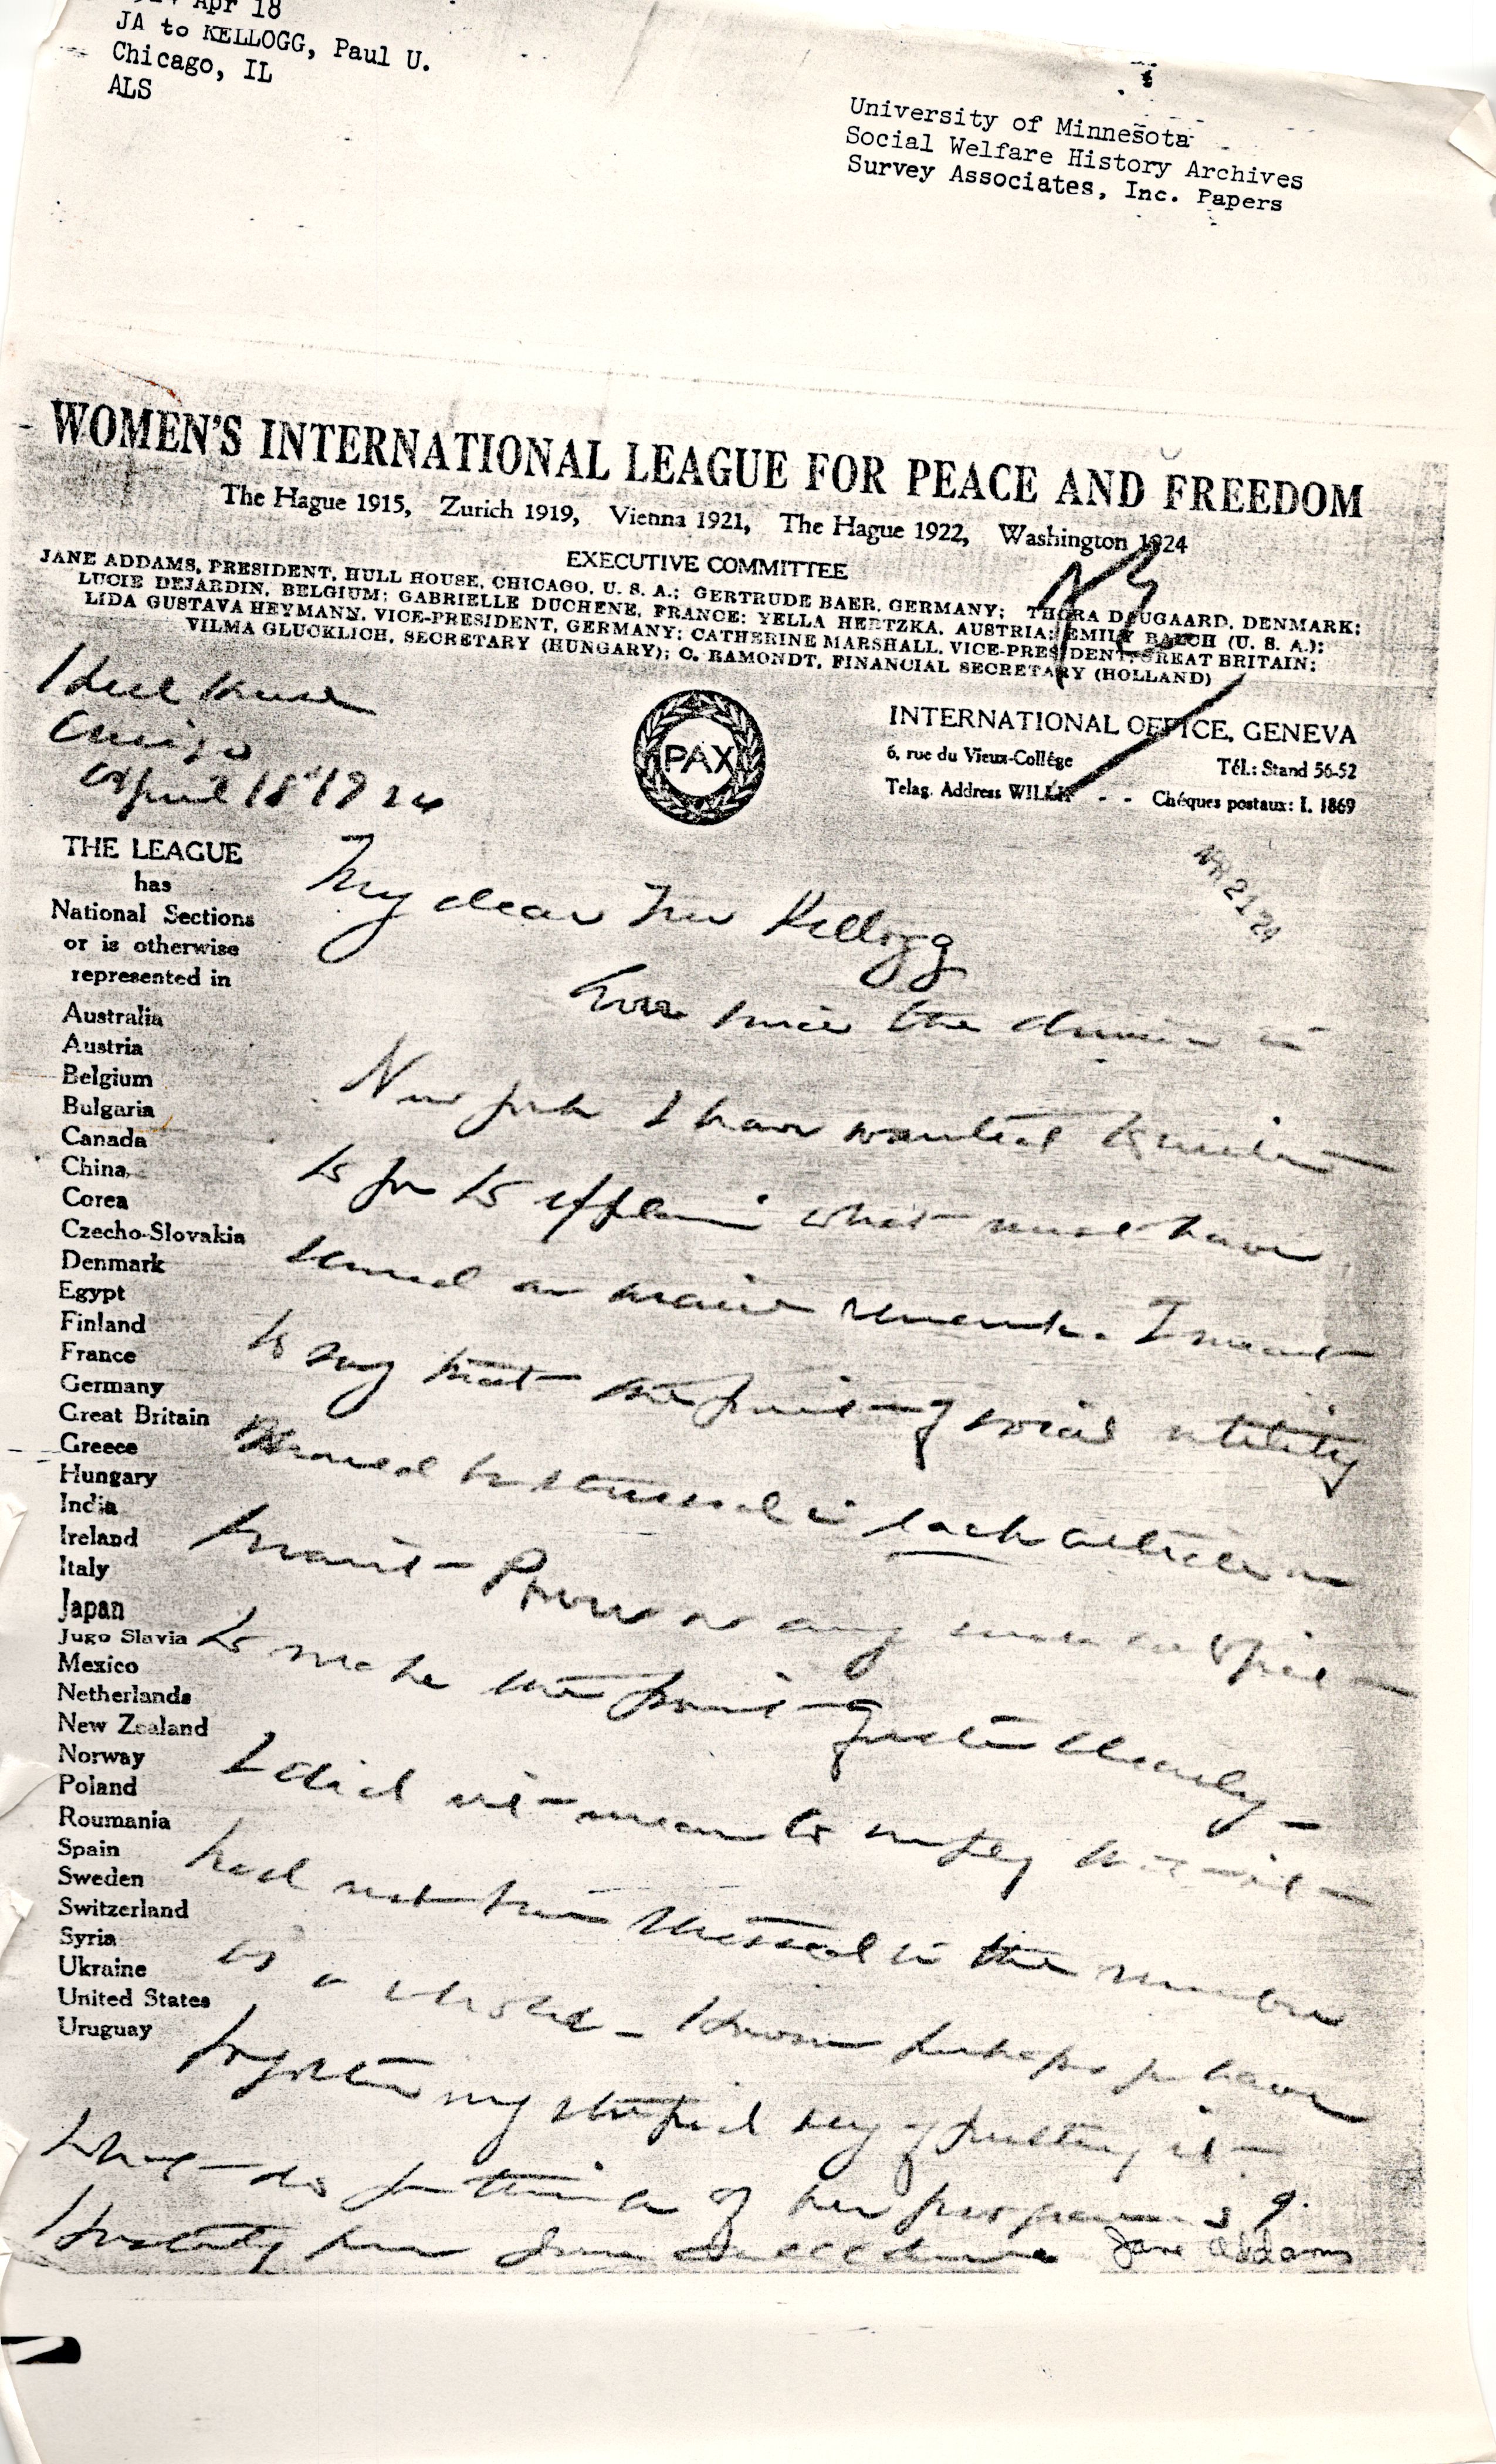 Apr 18
JA to KELLOGG, Paul U.
Chicago, IL
ALS
University of Minnesota
Social Welfare History Archives
Survey Associates, Inc. Papers
WOMEN'S INTERNATIONAL LEAGUE FOR PEACE AND FREEDOM
The Hague 1915, Zurich 1919, Vienna 1921, The Hague 1922, Washington 1924
EXECUTIVE COMMITTEE
JANE ADDAMS, PRESIDENT, HULL HOUSE, CHICAGO, U. S. A.; GERTRUDE BAER, GERMANY; THORA DAUGAARD, DENMARK;
LUCIE DEJARDIN, BELGIUM; GABRIELLE DUCHENE, FRANCE; YELLA HERTZKA, AUSTRIA; EMILY BALCH (U. S. A.);
LIDA GUSTAVA HEYMANN, VICE-PRESIDENT, GERMANY; CATHERINE MARSHALL, VICE-PRESIDENT, GREAT BRITAIN;
VILMA GLUCKLICH, SECRETARY (HUNGARY); C. RAMONDT, FINANCIAL SECRETARY (HOLLAND)
Hull House
Chicago
April 18" 1924
PAX
INTERNATIONAL OFFICE, GENEVA
6, rue du Vieux-Collège Tél.: Stand 56-52
Telag. Address WILLIF Chéques postaux: I. 1869
APR 21 '24
THE LEAGUE
has
National Sections
or is otherwise
represented in
Australia
Austria
Belgium
Bulgaria
Canada
China
Corea
Czecho-Slovakia
Denmark
Egypt
Finland
France
Germany
Great Britain
Greece
Hungary
India
Ireland
Italy
Japan
Jugo Slavia
Mexico
Netherlands
New Zealand
Norway
Poland
Roumania
Spain
Sweden
Switzerland
Syria
Ukraine
United States
Uruguay
My dear Mr Kellogg
Ever since the dinner in
New York I have wanted to write
to you to explain what must have
seemed an remark. I meant
to say that the point of social utility
should be stressed in each article on
Giant Power
to make the point quite clearly –
I did not mean to imply that it
had not been stressed in the number
as a whole – However perhaps you have
forgotten my stupid way of putting it –
What do you think of her programs?
Hastily yours Jane Addams